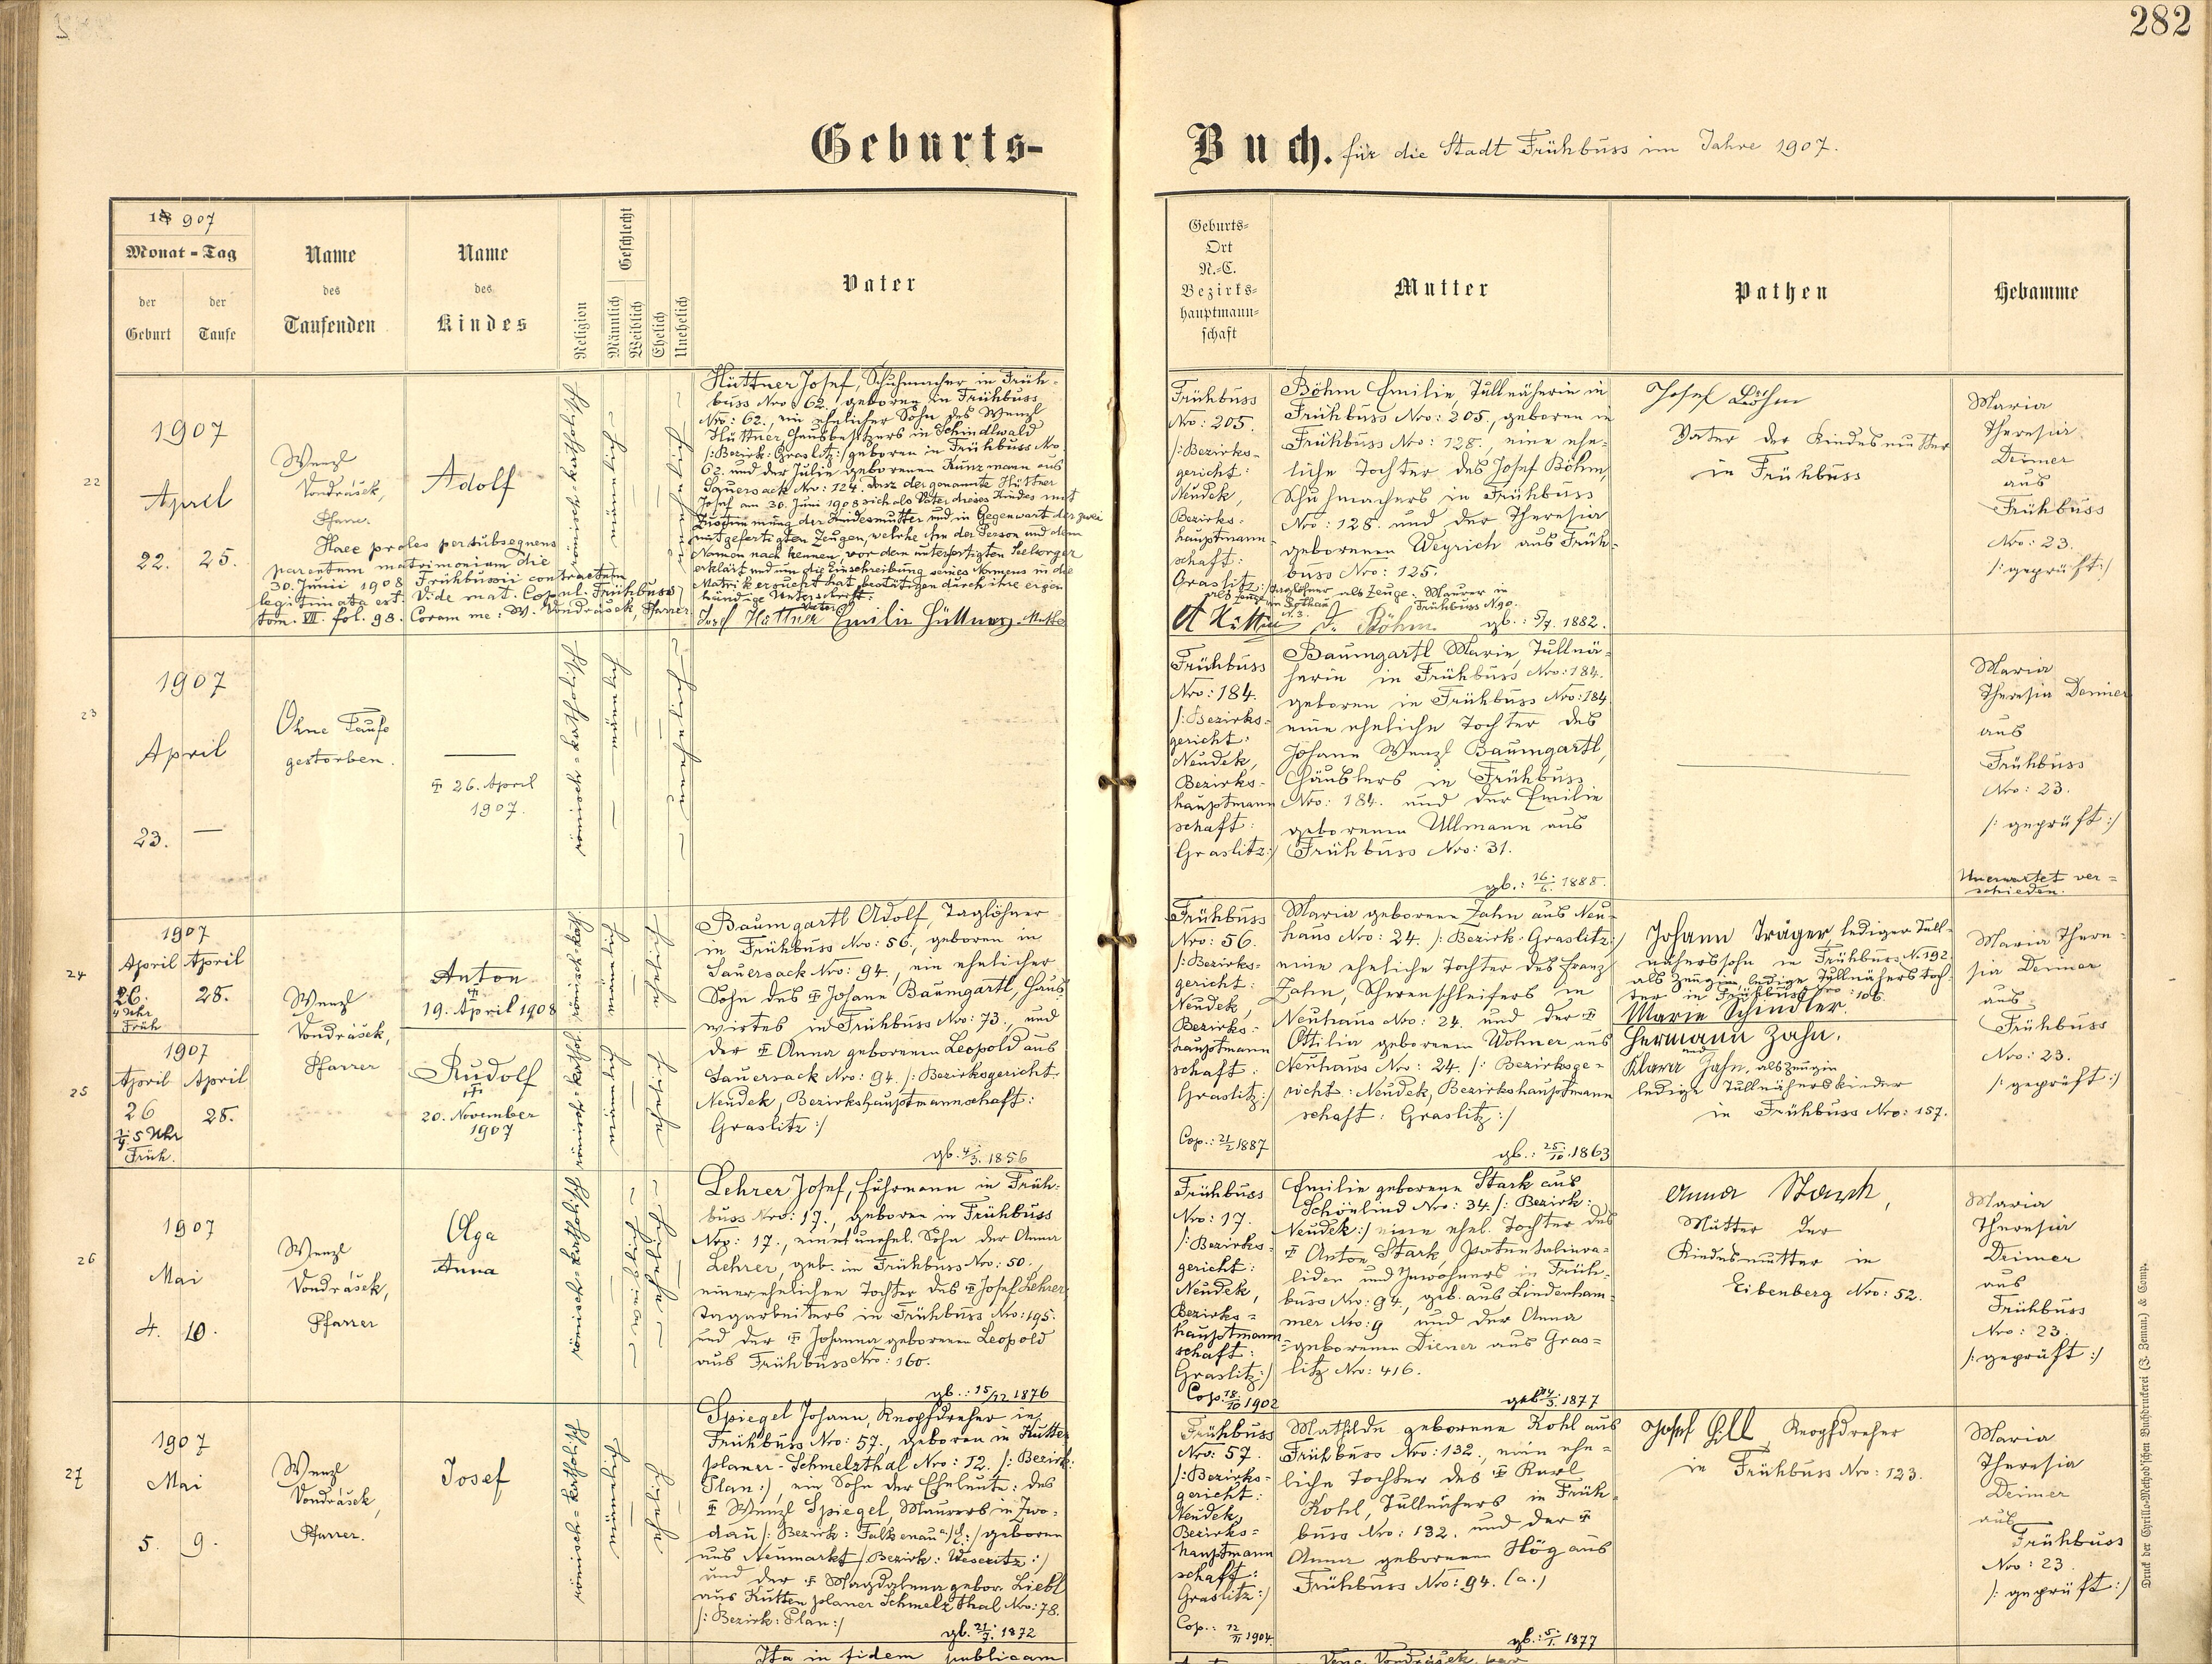 282
Geburts-
Buch. für die Stadt Frühbuss im Jahre 1907.
18 907
Monat-Tag
der Geburt
der Taufe
Name
des
Taufenden
Name
des
Kindes
Religion
Geschlecht
Männlich
Weiblich
Ehelich
Unehelich
Vater
Geburts-
Ort
N.-C.
Bezirks-
hauptmann-
schaft
Mutter
Pathen
Hebamme
22
1907
April
22. 25.
Wenzl
Vondrásek,
Pfarrer.
Adolf
Haec proles per subsequens
parentum matrimonium die
30. Junii 1908 Frühbussii contractum
legitimata est. Vide mat. Copul. Frühbuss
tom. VII. fol. 98. Coram me: W. Vondrásek, Pfarrer.
römisch-katholisch
Hüttner Josef, Schuhmacher in Früh-
buss Nro: 62. geboren in Frühbuss
Nro: 62., ein ehelicher Sohn des Wenzl
Hüttner, Hausbesitzers in Schindlwald
/: Bezirk: Graslitz:/ geboren in Frühbuss No.
62. und der Julie geborenen Kunzmann aus
Sauersack Nro: 124. Dasz der genannte Hüttner
Josef am 30. Juni 1908 sich als Vater dieses Kindes mit
Zustimmung der Kindesmutter und in Gegenwart der zwei
mitgefertigten Zeugen, welche ihn der Person und dem
Namen nach kennen, vor dem unterfertigten Seelsorger
erklärt und um die Einschreibung seines Namens in die
Matrik ersucht hat, bestätigen durch ihre eigen-
händige Unterschrift:
Josef Hüttner Vater Emilie Hüttner Mutter
Frühbuss
Nro: 205.
/: Bezirks-
gericht:
Neudek,
Bezirks-
hauptmann-
schaft:
Graslitz:/
Böhm Emilie, Tullnäherin in
Frühbuss Nro: 205., geboren in
Frühbuss Nro: 128., eine ehe-
liche Tochter des Josef Böhm,
Schuhmachers in Frühbuss
Nro: 128. und der Theresia
geborenen Weyrich aus Früh-
buss Nro: 125.
als Zeuge Maurer in
Frühbuss N 90.
Böhm gb.: 5/7. 1882.
Josef Böhm
Vater der Kindesmutter
in Frühbuss
Maria
Theresia
Deimer
aus
Frühbuss
Nro: 23.
/: geprüft:/
23
1907
April
23. —
Ohne Taufe
gestorben.
† 26. April
1907.
römisch-katholisch
Frühbuss
Nro: 184.
/: Bezirks-
gericht:
Neudek,
Bezirks-
hauptmann
schaft:
Graslitz:/
Baumgartl Marie, Tullnä-
herin in Frühbuss Nro: 184.
geboren in Frühbuss Nro: 184
eine eheliche Tochter des
Johann Wenzl Baumgartl,
Häuslers in Frühbuss
Nro: 184. und der Emilie
geborenen Ullmann aus
Frühbuss Nro: 31.
gb.: 16./6. 1888.
Maria
Theresia Deimer
aus
Frühbuss
Nro: 23.
/: geprüft:/
Unerwartet ver-
schieden.
24
1907
April April
26. 28.
4 Uhr
Früh
Wenzl
Vondrásek,
Pfarrer
Anton
†
19. April 1908
römisch-kath.
25
1907
April April
26 28.
1/4 5 Uhr
Früh.
Rudolf
†
20. November
1907
römisch-kathol.
Baumgartl Adolf, Taglöhner
in Frühbuss Nro: 56., geboren in
Sauersack Nro: 94., ein ehelicher
Sohn des † Johann Baumgartl, Haus-
wirtes in Frühbuss Nro: 73., und
der † Anna geborenen Leopold aus
Sauersack Nro: 94. /: Bezirksgericht:
Neudek, Bezirkshauptmannschaft:
Graslitz:/
gb. 4/3. 1856
Frühbuss
Nro: 56.
/: Bezirks-
gericht:
Neudek,
Bezirks-
hauptmann
schaft:
Graslitz:/
Cop.: 21/2 1887
Maria geborene Zahn aus Neu-
haus Nro: 24. /: Bezirk: Graslitz:/
eine eheliche Tochter des Franz
Zahn, Scherenschleifers in
Neuhaus Nro: 24. und der †
Ottilia geborenen Wohner aus
Neuhaus Nro: 24. /: Bezirksge-
richt: Neudek, Bezirkshauptmann
schaft: Graslitz:/
gb.: 25/10. 1863
Johann Träger, lediger Tull-
näherssohn in Frühbuss N. 192
als Zeugin, ledige Tullnäherstoch-
ter in Frühbuss Nro: 106.
Marie Schindler.
Hermann Zahn,
und
Klara Zahn, als Zeugin
ledige Tullnäherskinder
in Frühbuss Nro: 157.
Maria There-
sia Deimer
aus
Frühbuss
Nro: 23.
/: geprüft:/
26
1907
Mai
4. 10.
Wenzl
Vondrásek,
Pfarrer
Olga
Anna
römisch-katholisch
Lehrer Josef, Fuhrmann in Früh-
buss Nro: 17., geboren in Frühbuss
Nro: 17., ein unehel. Sohn der Anna
Lehrer, geb. in Frühbuss Nro: 50.,
einer ehelichen Tochter des † Josef Lehrer
Tagarbeiters in Frühbuss Nro: 195.
und der † Johanna geborenen Leopold
aus Frühbuss Nro: 160.
gb.: 15/12 1876
Frühbuss
Nro: 17.
/: Bezirks-
gericht:
Neudek,
Bezirks-
hauptmann-
schaft:
Graslitz:/
Cop. 18/10 1902
Emilie geborene Stark aus
Schönlind Nro: 34. /: Bezirk:
Neudek:/ eine ehel. Tochter des
† Anton Stark, Patentalinva-
liden und Inwohners in Früh-
buss Nro: 94., geb. aus Lindenham-
mer Nro: 9 und der Anna
geborenen Diener aus Gras-
litz Nro: 416.
geb. 14/5. 1877
Anna Stark,
Mutter der
Kindesmutter in
Eibenberg Nro: 52.
Maria
Theresia
Deimer
aus
Frühbuss
Nro: 23.
/: geprüft:/
27
1907
Mai
5. 9.
Wenzl
Vondrásek,
Pfarrer.
Josef
römisch-katholisch
Spiegel Johann, Knopfdreher in
Frühbuss Nro: 57., geboren in Kutten
planer-Schmelzthal Nro: 72. /: Bezirk:
Plan:/, ein Sohn der Eheleute: des
† Wenzl Spiegel, Maurers in Zwo-
dau /: Bezirk: Falkenau a./d.:/ geboren
aus Neumarkt /: Bezirk: Weseritz:/
und der † Magdalena gebor. Liebl
aus Kuttenplaner Schmelzthal Nro: 78.
/: Bezirk: Plan:/
gb. 21/7. 1872
Frühbuss
Nro: 57.
/: Bezirks-
gericht:
Neudek,
Bezirks-
hauptmann
schaft:
Graslitz:/
Cop.: 12/11 1904.
Mathilde geborene Kohl aus
Frühbuss Nro: 132., eine ehe-
liche Tochter des † Karl
Kohl, Tullnähers in Früh-
buss Nro: 132. und der †
Anna geborenen Hög aus
Frühbuss Nro: 94. (a.)
gb.: 5./1. 1877
Josef Gill, Knopfdreher
in Frühbuss Nro: 123.
Maria
Theresia
Deimer
aus
Frühbuss
Nro: 23.
/: geprüft:/
Ita in fidem publicam
Venc. Vondrásek, par
Druck der Cyrillo-Method'schen Buchdruckerei (J. Zeman.) & Comp.